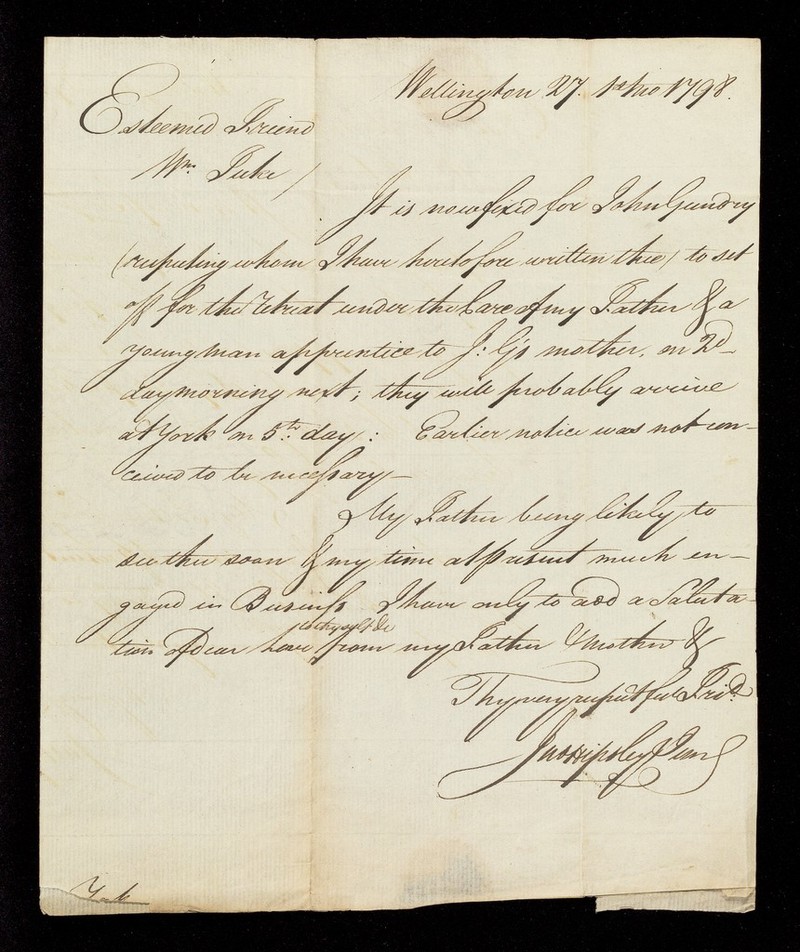 Wellington 27. 1st mo 1798.
Esteemed Friend
Wm. Tuke /
It is now fixed for John Gundry
(respecting whom I have heretofore written thee) to set
off for the Retreat under the Care of my Father & a
young man apprentice to J: G's mother, on 2d
day morning next; they will probably arrive
at York on 5th. day: Earlier notice was not con-
ceived to be necessary —
My Father being likely to
see thee soon & my time at present much en-
gaged in Business I have only to add a Saluta-
tion of dear Love to thyself &c from my Father & Mother &
Thy very respectful Frid.
Jno Hipsley Junr
York